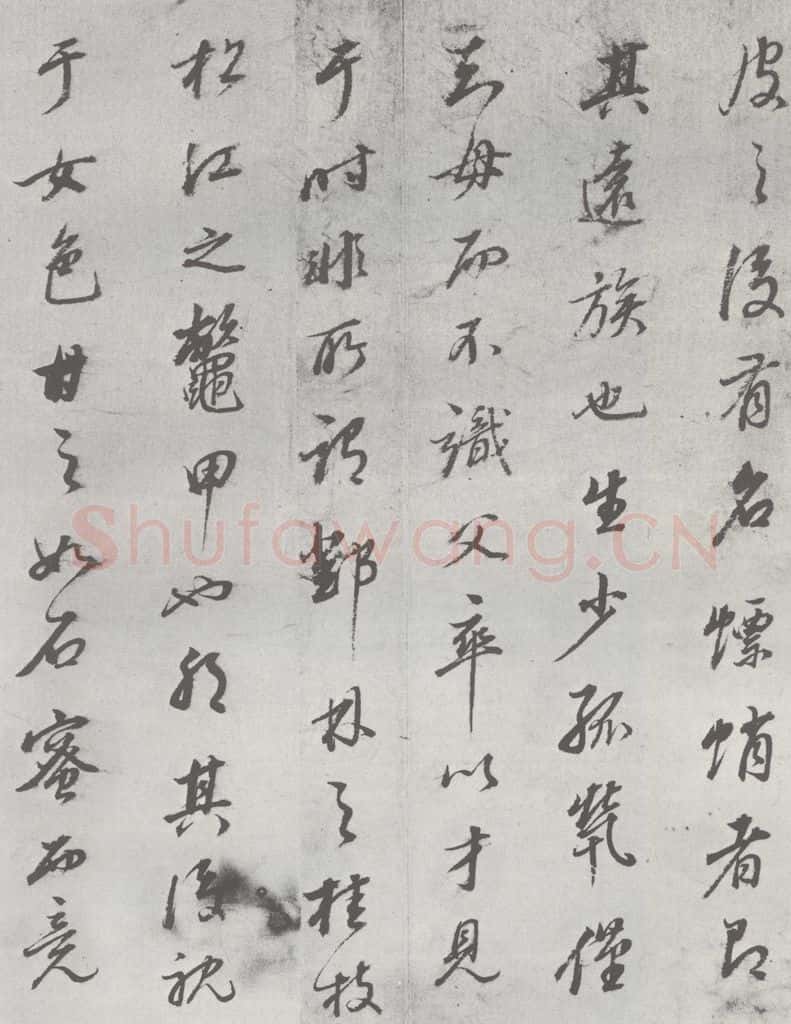 皮之後有名螵蛸者即
其遠族也生少孤煢僅
知母而不識父卒以才見
于時非所謂鄧林之桂枝
松江之鼈甲也耶其後耽
于女色甘之如石蜜而竟
Shufawang.CN